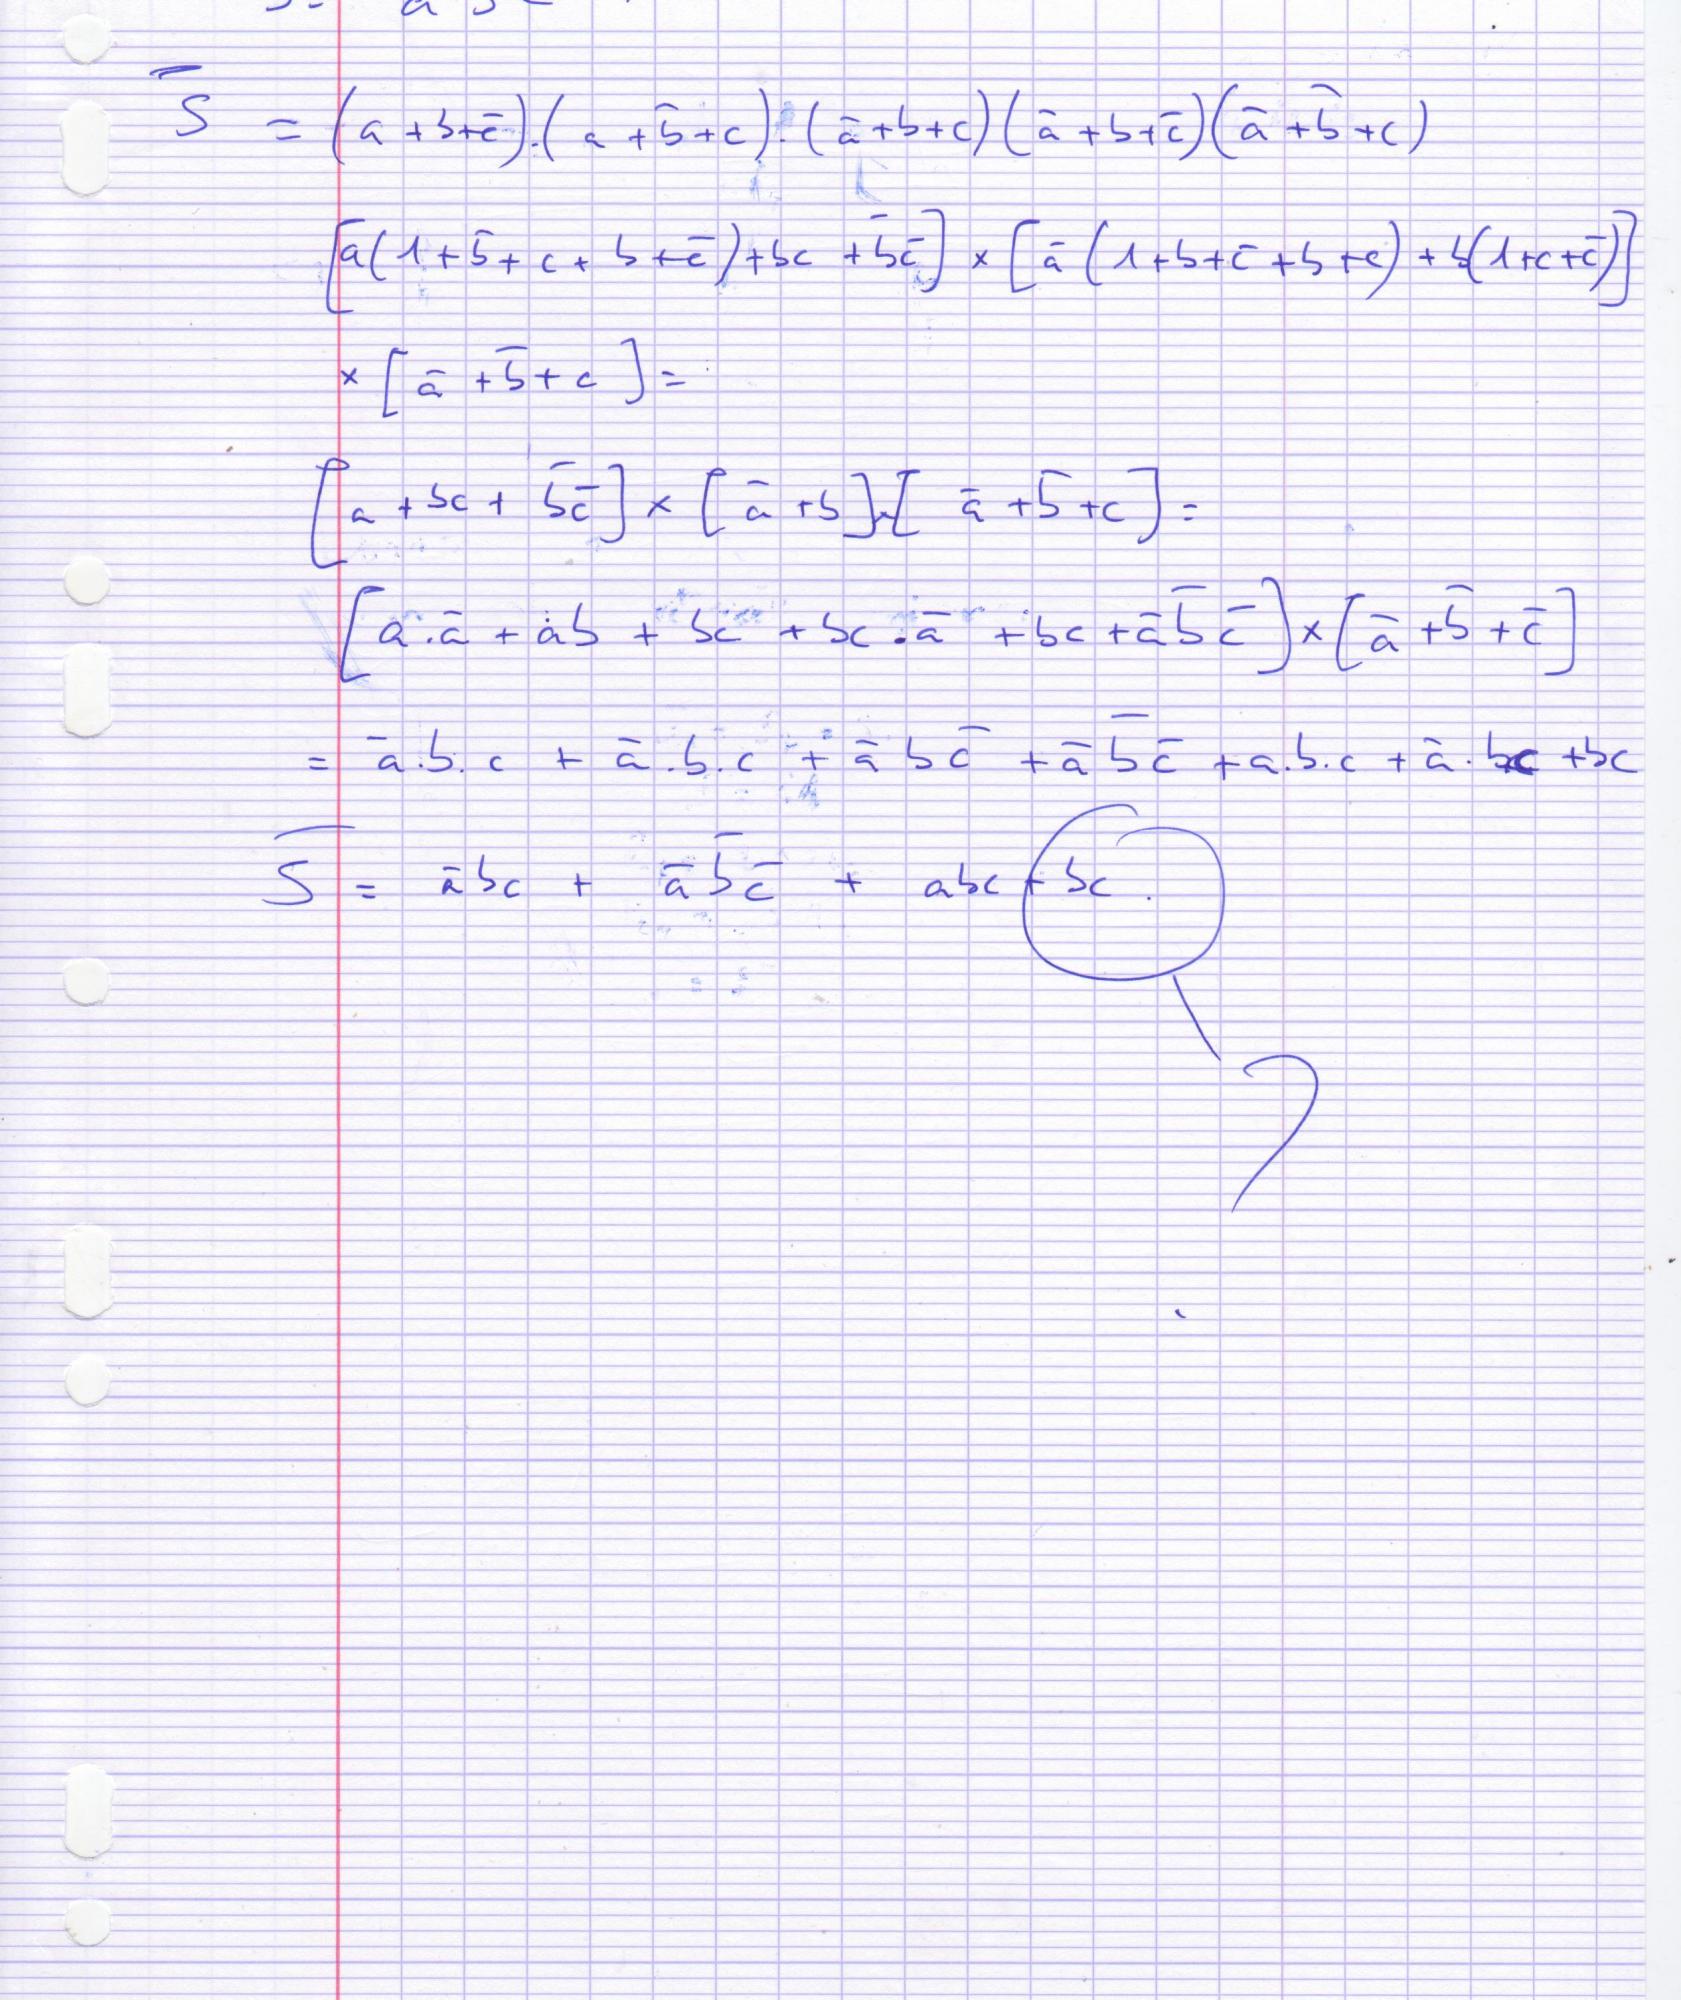 S̄ = (a + b + c̄).(a + b̄ + c).(ā + b + c)(ā + b + c̄)(ā + b̄ + c)
[a(1 + b̄ + c + b + c̄) + bc + b̄c̄] × [ā(1 + b + c̄ + b + c) + b(1 + c + c̄)]
× [ā + b̄ + c] =
[a + bc + b̄c̄] × [ā + b] × [ā + b̄ + c] =
[a.ā + ab + bc + bc.ā + bc + āb̄c̄] × [ā + b̄ + c̄]
= ā.b.c + ā.b.c + ābc̄ + āb̄c̄ + a.b.c + ā.bc + bc
S̄ = ābc + āb̄c̄ + abc + bc.
?